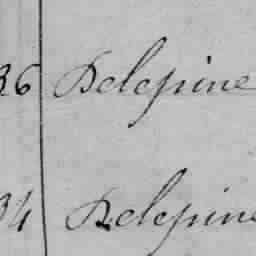 36 Delepine
34 Delepine